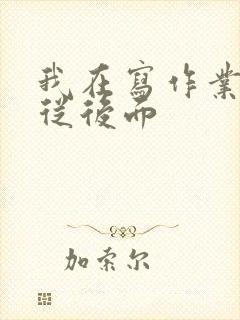 我在寫作業
從後面
加索尔